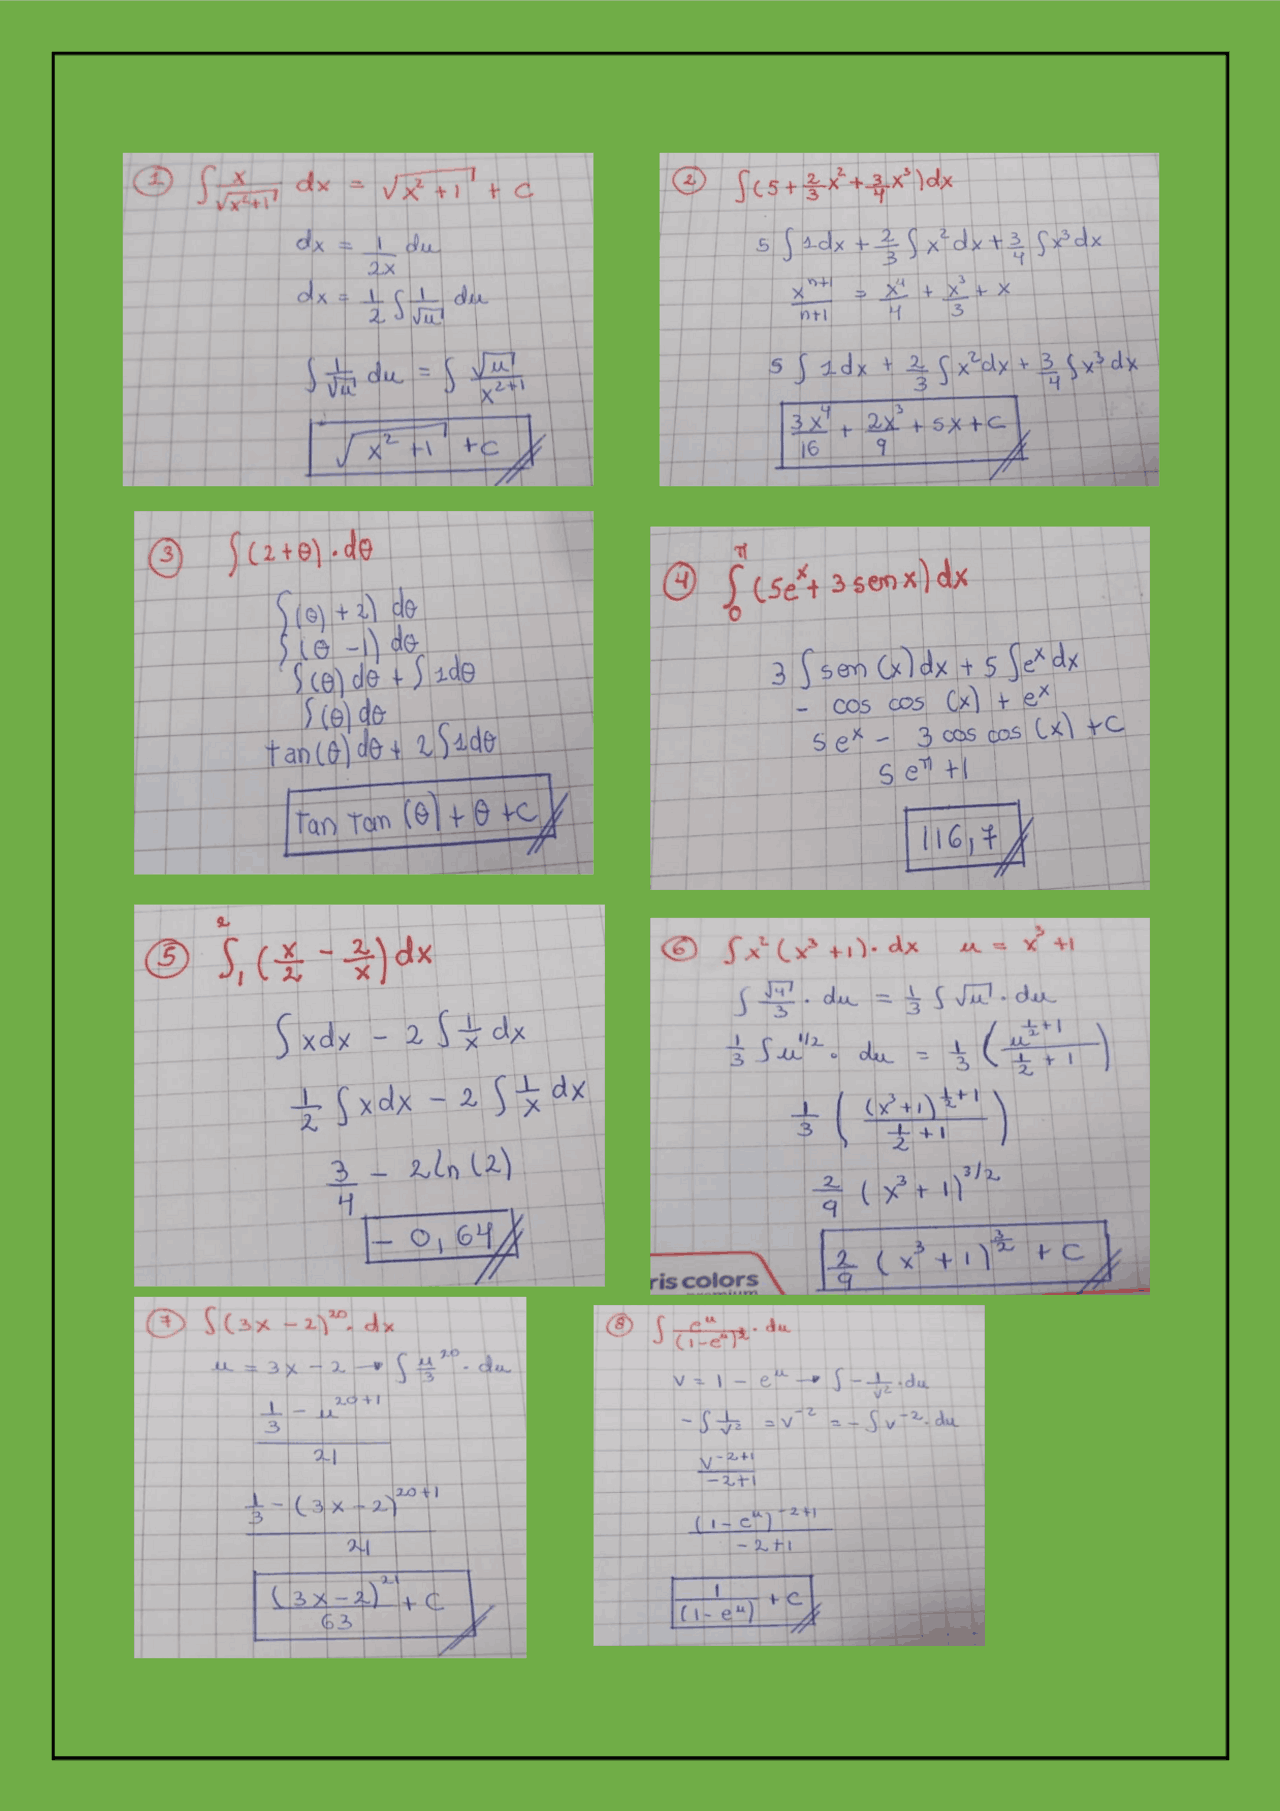 ① ∫ x/√(x²+1) dx = √(x²+1) + C
dx = 1/2x du
dx = 1/2 ∫ 1/√u du
∫ 1/√u du = ∫ √u/x²+1
√(x²+1) + C
② ∫(5 + 2/3 x² + 3/4 x³) dx
5 ∫ 1dx + 2/3 ∫ x² dx + 3/4 ∫ x³ dx
xⁿ⁺¹/n+1 = x⁴/4 + x³/3 + x
5 ∫ 1dx + 2/3 ∫ x² dx + 3/4 ∫ x³ dx
3x⁴/16 + 2x³/9 + 5x + C
③ ∫(2+θ) . dθ
∫(θ) + 2) dθ
∫(θ -1) dθ
∫(θ) dθ + ∫ 1dθ
∫(θ) dθ
tan(θ) dθ + 2 ∫1dθ
Tan Tan (θ) + θ + C
④ ∫₀^π (5eˣ + 3 sen x) dx
3 ∫ sen (x) dx + 5 ∫ eˣ dx
- cos cos (x) + eˣ
5 eˣ - 3 cos cos (x) + C
5 e^π + 1
116,7
⑤ ∫₁² (x/2 - 2/x) dx
∫ xdx - 2 ∫ 1/x dx
1/2 ∫ xdx - 2 ∫ 1/x dx
3/4 - 2ln(2)
- 0,64
⑥ ∫ x² (x³ + 1) . dx u = x³ + 1
∫ √u/3 . du = 1/3 ∫ √u . du
1/3 ∫ u^1/2 . du = 1/3 (u^(1/2+1)/(1/2 + 1))
1/3 ((x³+1)^(1/2+1)/(1/2 + 1))
2/9 (x³ + 1)^3/2
2/9 (x³ + 1)^3/2 + C
ris colors
premium
⑦ ∫(3x - 2)²⁰ . dx
u = 3x - 2 → ∫ u²⁰/3 . du
1/3 - u²⁰⁺¹
21
1/3 - (3x - 2)²⁰⁺¹
21
(3x - 2)²¹/63 + C
⑧ ∫ eᵘ/(1-eᵘ)² . du
v = 1 - eᵘ → ∫ - 1/v² . du
- ∫ 1/v² = v⁻² = - ∫ v⁻² . du
v⁻²⁺¹/-2+1
(1 - eᵘ)⁻²⁺¹
-2+1
1/(1 - eᵘ) + C